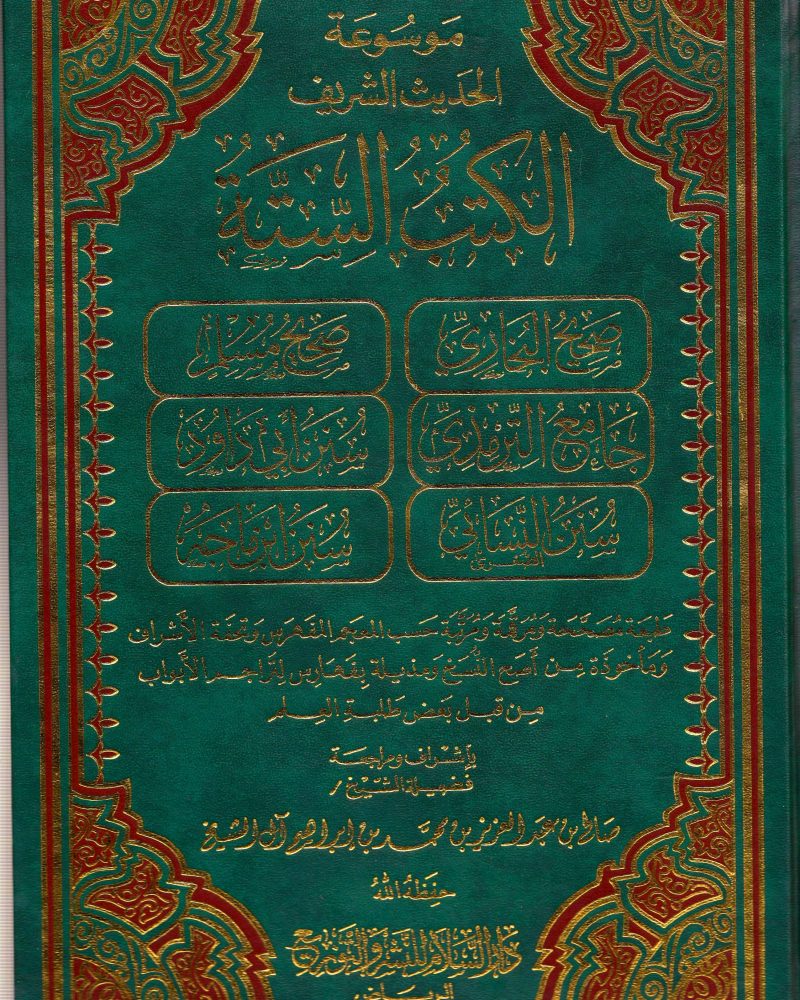 مَوسُوعَة
الحَديث الشريف
الكتبُ السِّتَّة
صَحِيحُ البُخَارِيِّ
صَحِيحُ مُسْلِم
جَامِعُ التِّرمِذِيِّ
سُنَنُ أبي دَاوُد
سُنَنُ النَّسَائِيِّ
الصغرى
سُنَنُ ابن مَاجَه
طَبعَة مُصَحَّحَة ومُرقَّمة ومُرتَّبة حَسب المعجم المفَهرس وتحفة الأشراف
وَمأخوذة مِن أَصَح النُّسَخ ومذيلة بِفَهَارس لتراجم الأبواب
مِن قبل بَعض طَلبةِ العِلم
بإشراف ومراجعة
فَضيلة الشيخ /
صَالح بن عَبد العَزيز بن محمَّد بن إبراهيم آل الشيخ
حَفِظَهُ اللهُ
دَارُ السَّلَام للنَّشر والتَّوزيع
الرياض